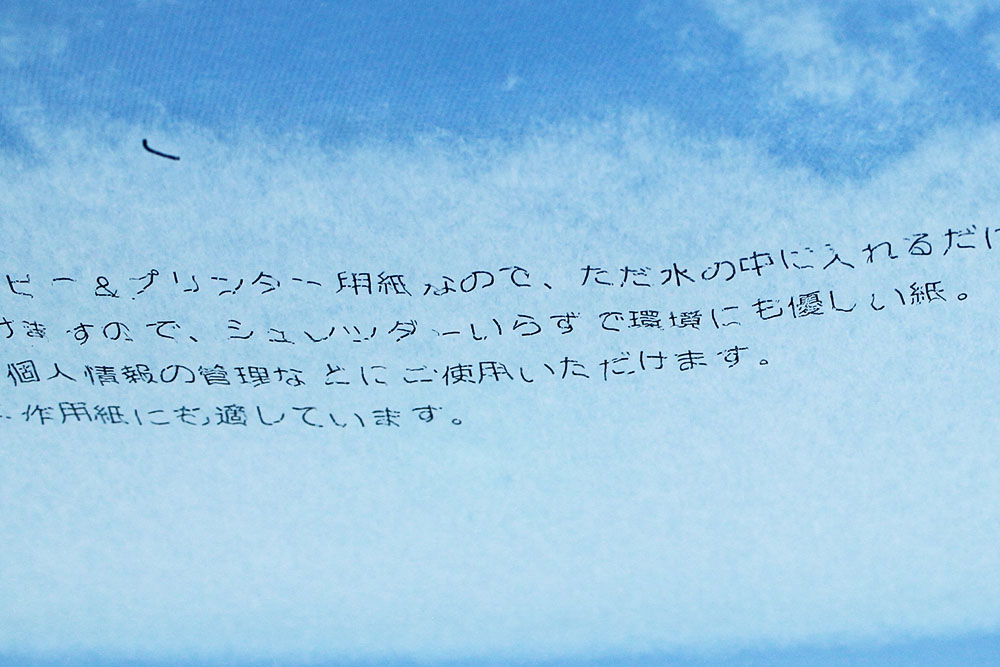 ピー&プリンター用紙なので、ただ水の中に入れるだけ
けますので、シュレッダーいらずで環境にも優しい紙。
個人情報の管理などにご使用いただけます。
作用紙にも適しています。